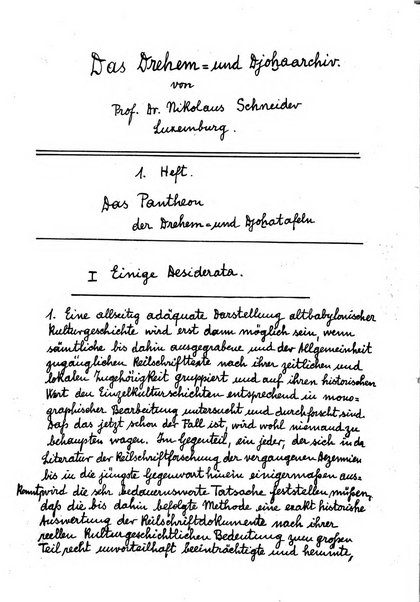 Das Drehem= und Djohaarchiv.
von
Prof. Dr. Nikolaus Schneider
Luxemburg.
1. Heft.
Das Pantheon
der Drehem= und Djohatafeln
I Einige Desiderata.
1. Eine allseitig adäquate Darstellung altbabylonischer
Kulturgeschichte wird erst dann möglich sein, wenn
sämtliche bis dahin ausgegrabene und der Allgemeinheit
zugänglichen Keilschrifttexte nach ihrer zeitlichen und
lokalen Zugehörigkeit gruppiert und auf ihren historischen
Wert den Einzelkulturschichten entsprechend in mono=
graphischer Bearbeitung untersucht und durchforscht sind.
Daß das jetzt schon der Fall ist, wird wohl niemand zu
behaupten wagen. Im Gegenteil, ein jeder, der sich in der
Literatur der Keilschriftforschung der vergangenen Dezennien
bis in die jüngste Gegenwart hinein einigermaßen aus=
kennt, wird die sehr bedauernswerte Tatsache feststellen müßen,
daß die bis dahin befolgte Methode eine exakt historische
Auswertung der Keilschriftdokumente nach ihrer
reellen kulturgeschichtlichen Bedeutung zum großen
Teil recht unvorteilhaft beeinträchtigte und hemmte,